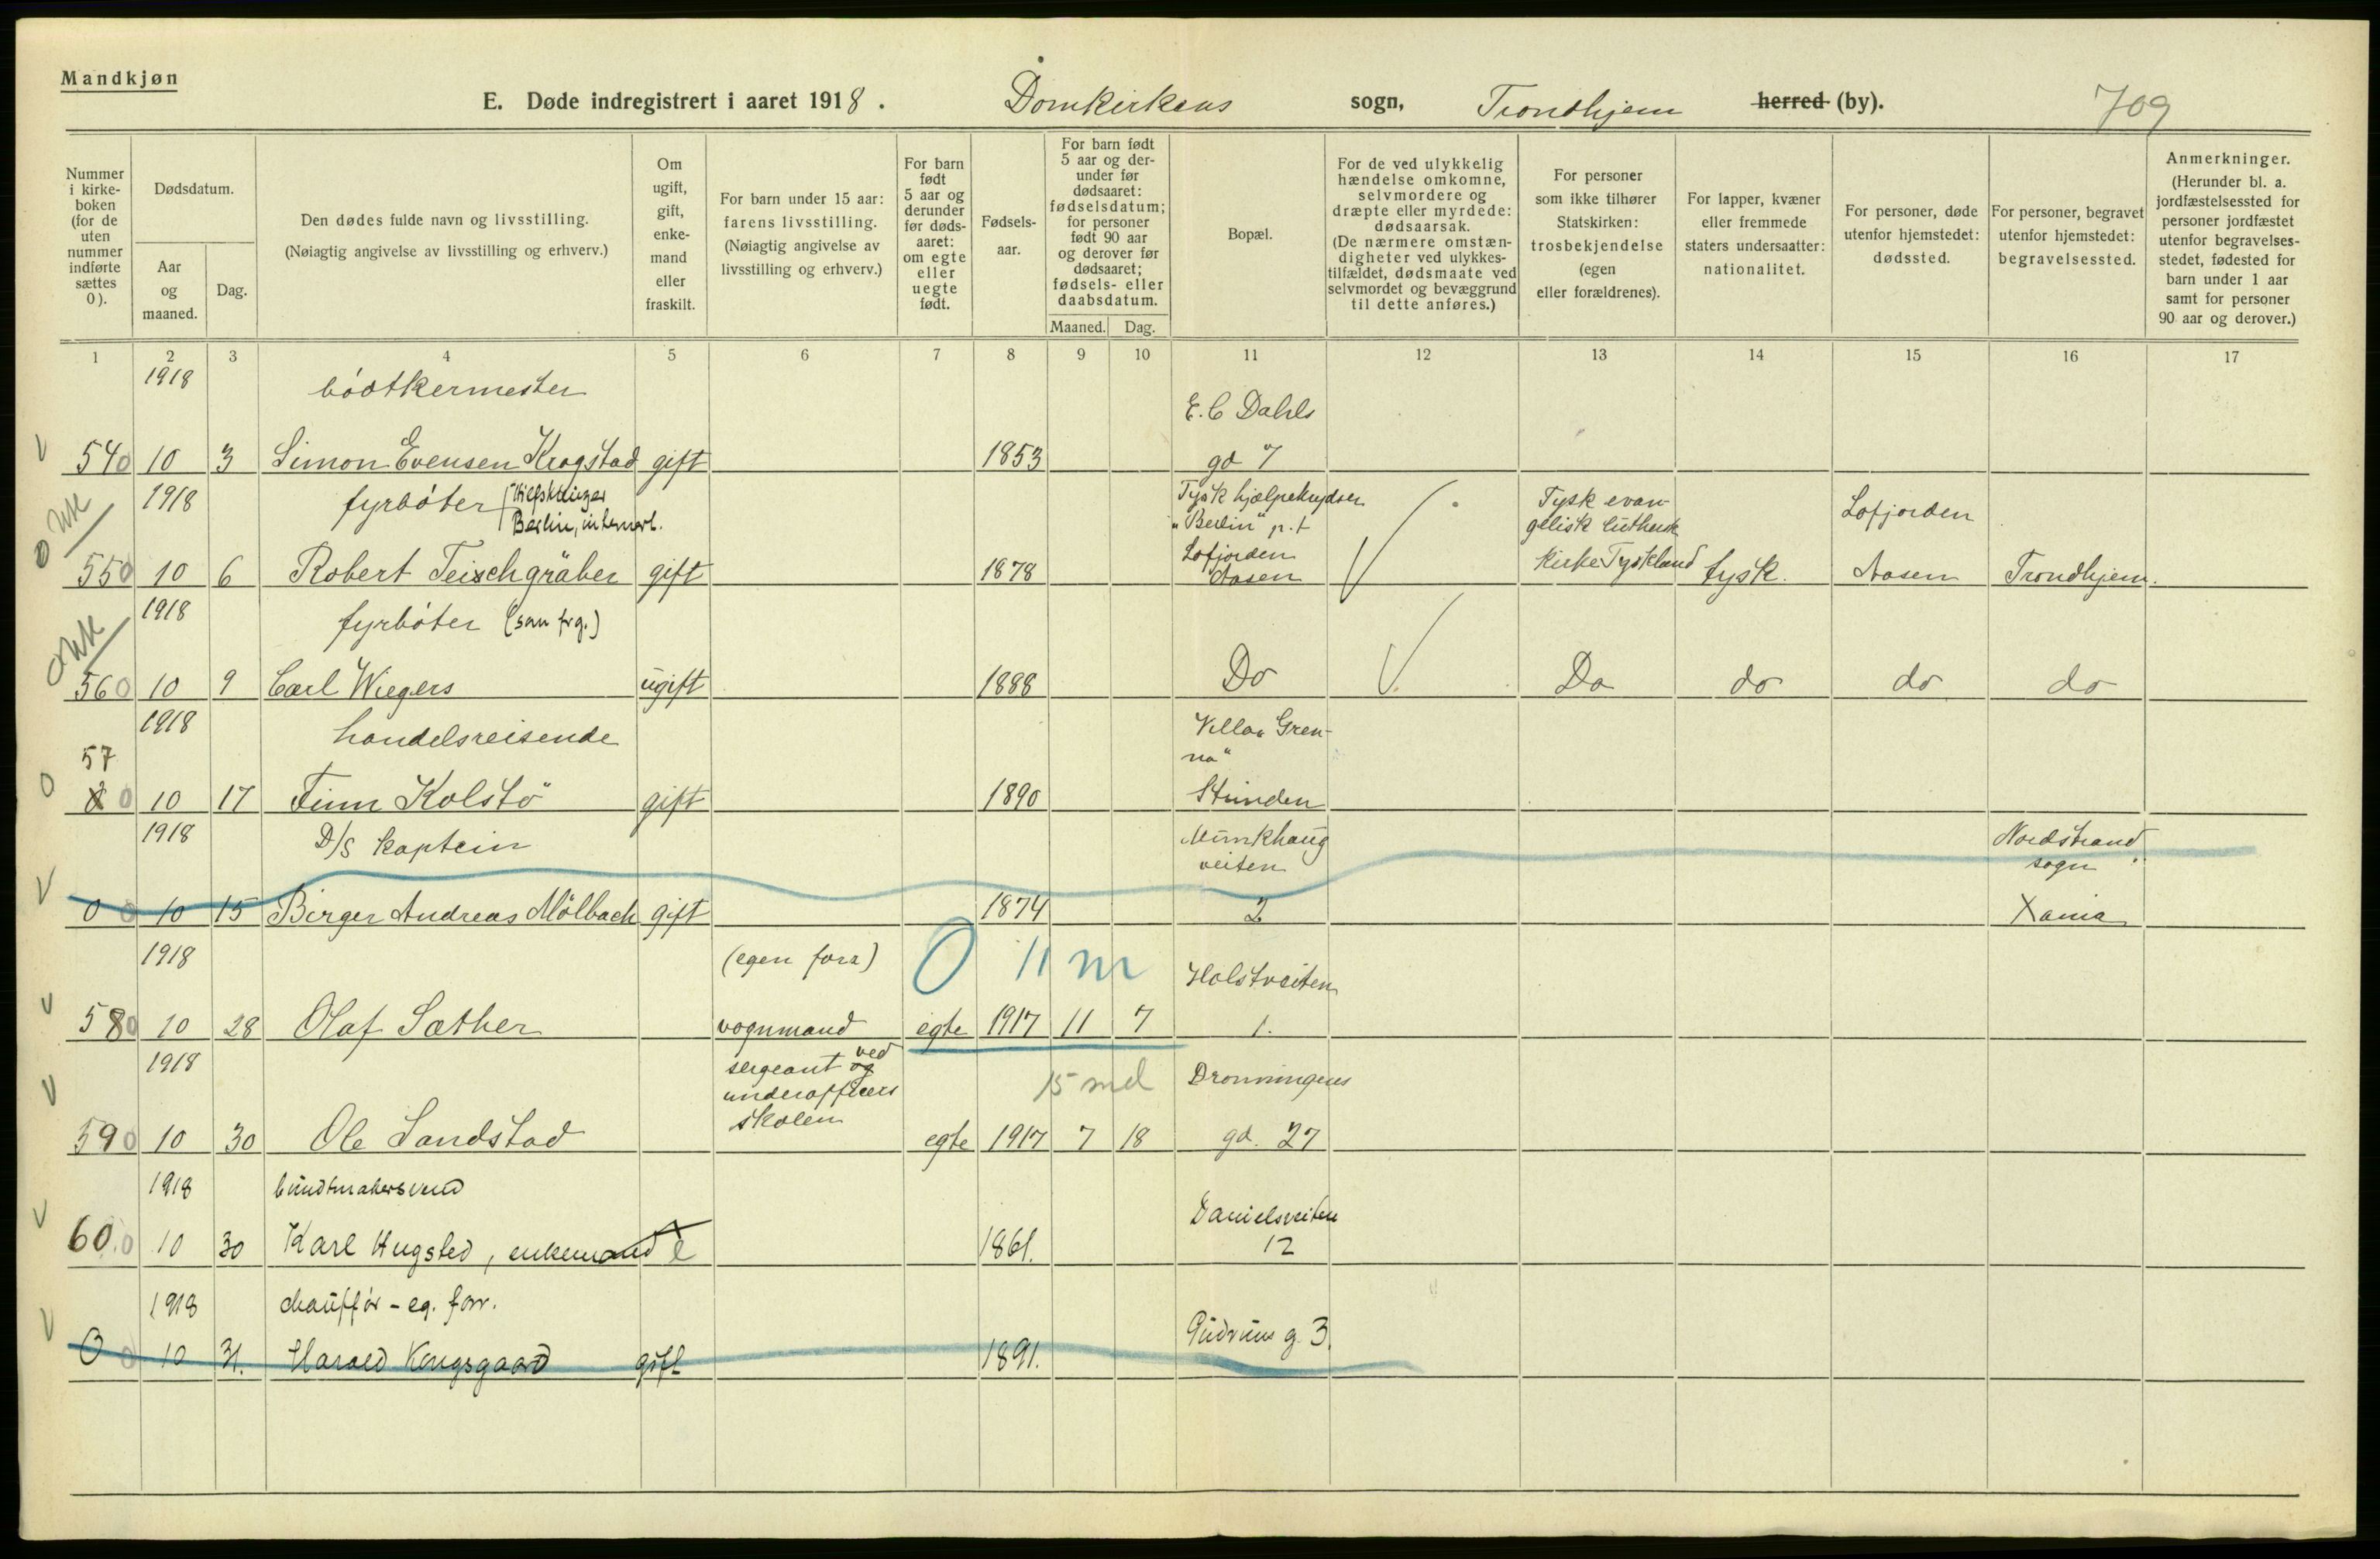 Mandkjøn
E. Døde indregistrert i aaret 1918. Domkirkens sogn, Trondhjem herred (by). 709
Nummer i kirke- boken (for de uten nummer indførte sættes 0).
Dødsdatum.
Aar og maaned.
Dag.
Den dødes fulde navn og livsstilling.
(Nøiagtig angivelse av livsstilling og erhverv.)
Om ugift, gift, enke- mand eller fraskilt.
For barn under 15 aar: farens livsstilling. (Nøiagtig angivelse av livsstilling og erhverv.)
For barn født 5 aar og derunder før døds- aaret: om egte eller uegte født.
Fødsels- aar.
For barn født 5 aar og der- under før dødsaaret: fødselsdatum; for personer født 90 aar og derover før dødsaaret; fødsels- eller daabsdatum.
Maaned. Dag.
Bopæl.
For de ved ulykkelig hændelse omkomne, selvmordere og dræpte eller myrdede: dødsaarsak. (De nærmere omstæn- digheter ved ulykkes- tilfældet, dødsmaate ved selvmordet og bevæggrund til dette anføres.)
For personer som ikke tilhører Statskirken: trosbekjendelse (egen eller forældrenes).
For lapper, kvæner eller fremmede staters undersaatter: nationalitet.
For personer, døde utenfor hjemstedet: dødssted.
For personer, begravet utenfor hjemstedet: begravelsessted.
Anmerkninger. (Herunder bl. a. jordfæstelsessted for personer jordfæstet utenfor begravelses- stedet, fødested for barn under 1 aar samt for personer 90 aar og derover.)
1 2 3 4 5 6 7 8 9 10 11 12 13 14 15 16 17
1918 bødtkermester E. C Dahls
540 10 3 Simon Evensen Krogstad gift 1853 gd 7
1918 fyrbøter Berlin, internert. Tysk hjælpekrydser "Berlin" p.t Lofjorden Tysk evan- gelisk luthersk Lofjorden
550 10 6 Robert Teischgräber gift 1878 Aasen kirke Tyskland tysk. Aasen Trondhjem.
1918 fyrbøter (san frg.)
560 10 9 Carl Wiegers ugift 1888 Do Do do do do
1918 handelsreisende Villa "Gren- na"
57
0 10 17 Finn Kolstö gift 1890 Stinden
1918 D/S kaptein Munkhaug veiten Nordstrand sogn
0 0 10 15 Birger Andreas Mölbach gift 1874 2 Xania
1918 (egen forr) 0 11 m Holstveiten
580 10 28 Olaf Sæther vognmand egte 1917 11 7 1.
1918 sergeant og ved underofficers skolen 15 md Dronningens
590 10 30 Ole Sandstad egte 1917 7 18 gd. 27
1918 buntmakersvend Danielsveiten
60.0 10 30 Karl Hugsted, enkemand e 1861. 12
1918 chauffør - eg. forr. Gudruns g. 3.
0 0 10 31. Harald Kongsgaard gift 1891.